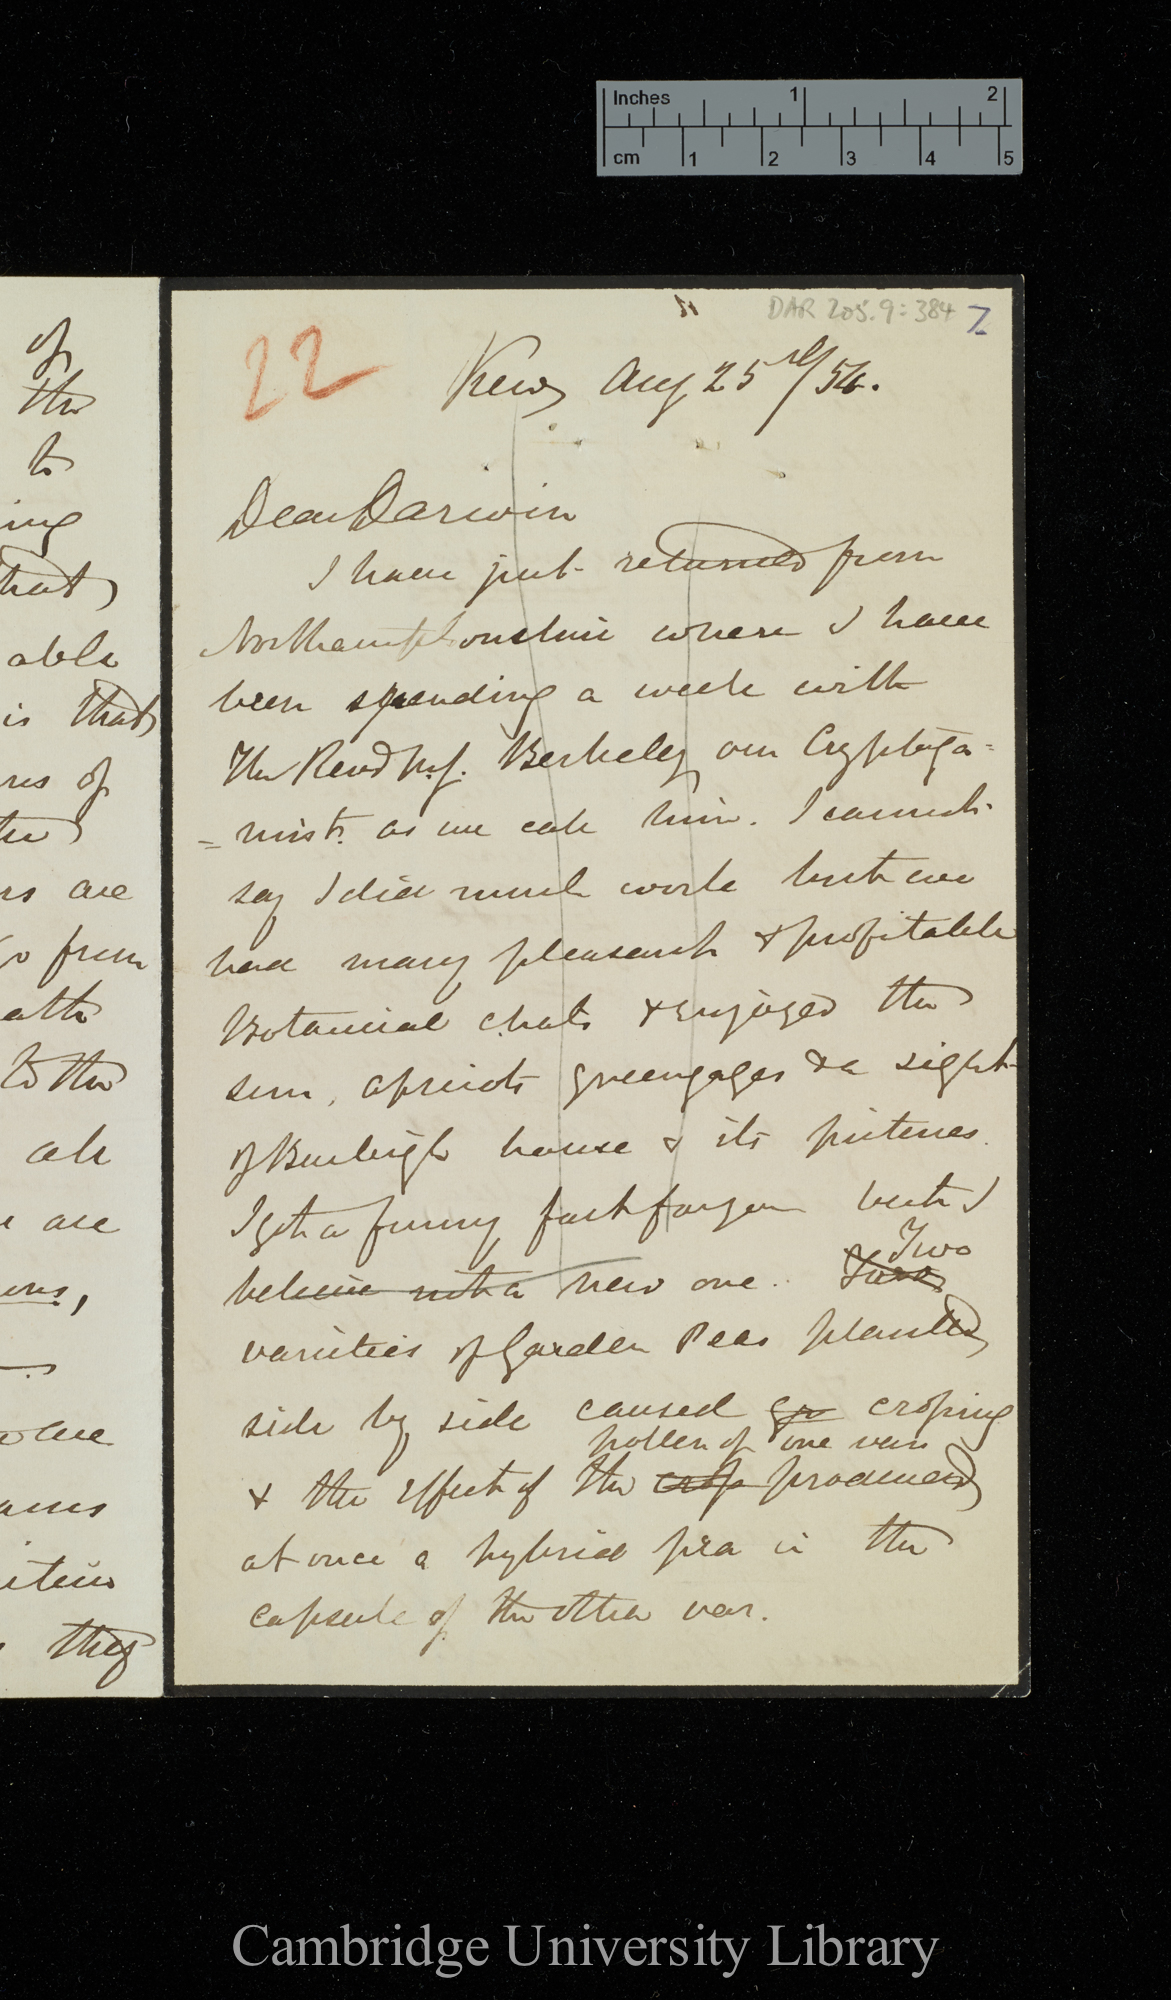 Inches 1 2
cm 1 2 3 4 5
DAR 205.9:384
22
Kew Aug 25th/54.
Dear Darwin
I have just returned from
Northamptonshire where I have
been spending a week with
The Revd M.J. Berkeley our Cryptoga=
=mist. as we call him. I cannot
say I did much work but we
had many pleasant & profitable
Botanical chats & enjoyed the
sun, apricots greengages & a sight
of Burleigh house & its pictures.
I got a funny fact for you but I
believe not a new one. Two
Two
varieties of Garden Peas planted
side by side caused cro croping
pollen of one var
& the effect of the crop produced
at once a hybrid pea in the
capsule of the other var.
of
the
to
ing
that
able
is that
res of
the
rs are
from
to the
all
are
ons,
are
they
Cambridge University Library